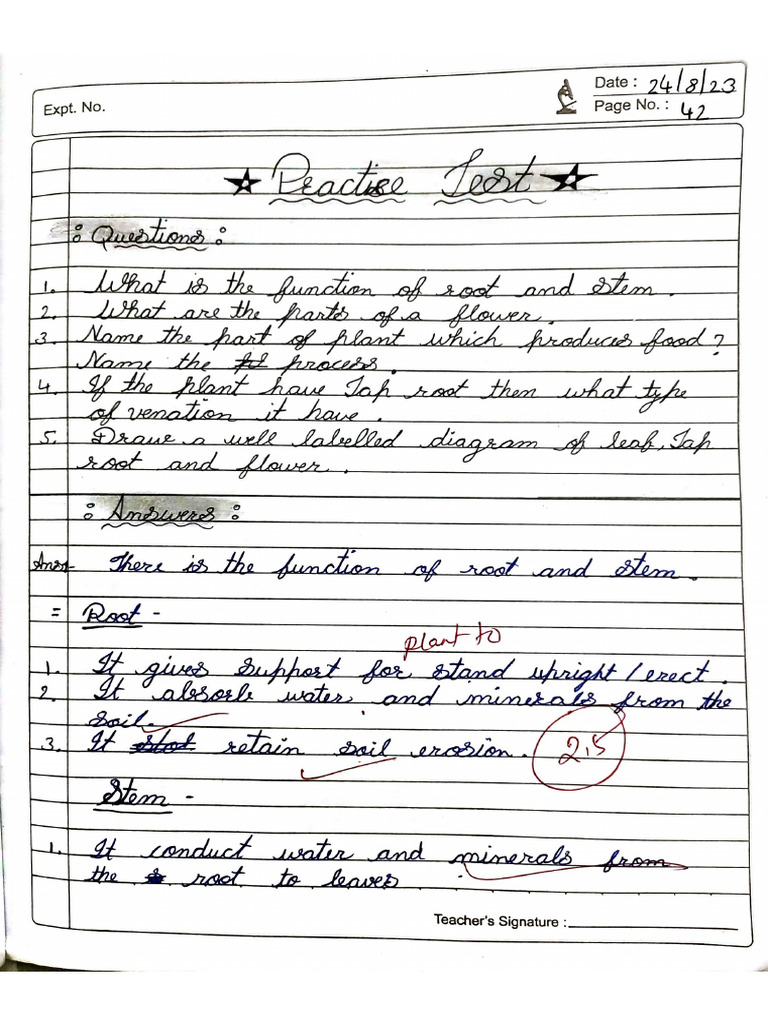 Expt. No.
Date : 24/8/23
Page No. : 42
Practise Test
: Questions :
1. What is the function of root and stem.
2. What are the parts of a flower.
3. Name the part of plant which produces food?
Name the process.
4. If the plant have Tap root then what type
of venation it have.
5. Draw a well labelled diagram of leaf, Tap
root and flower.
: Answers :
Ans1- There is the function of root and stem.
= Root -
plant to
1. It gives support for stand upright/erect.
2. It absorb water and minerals from the
soil.
3. It retain soil erosion. 2.5
Stem -
1. It conduct water and minerals from
the root to leaves
Teacher's Signature :